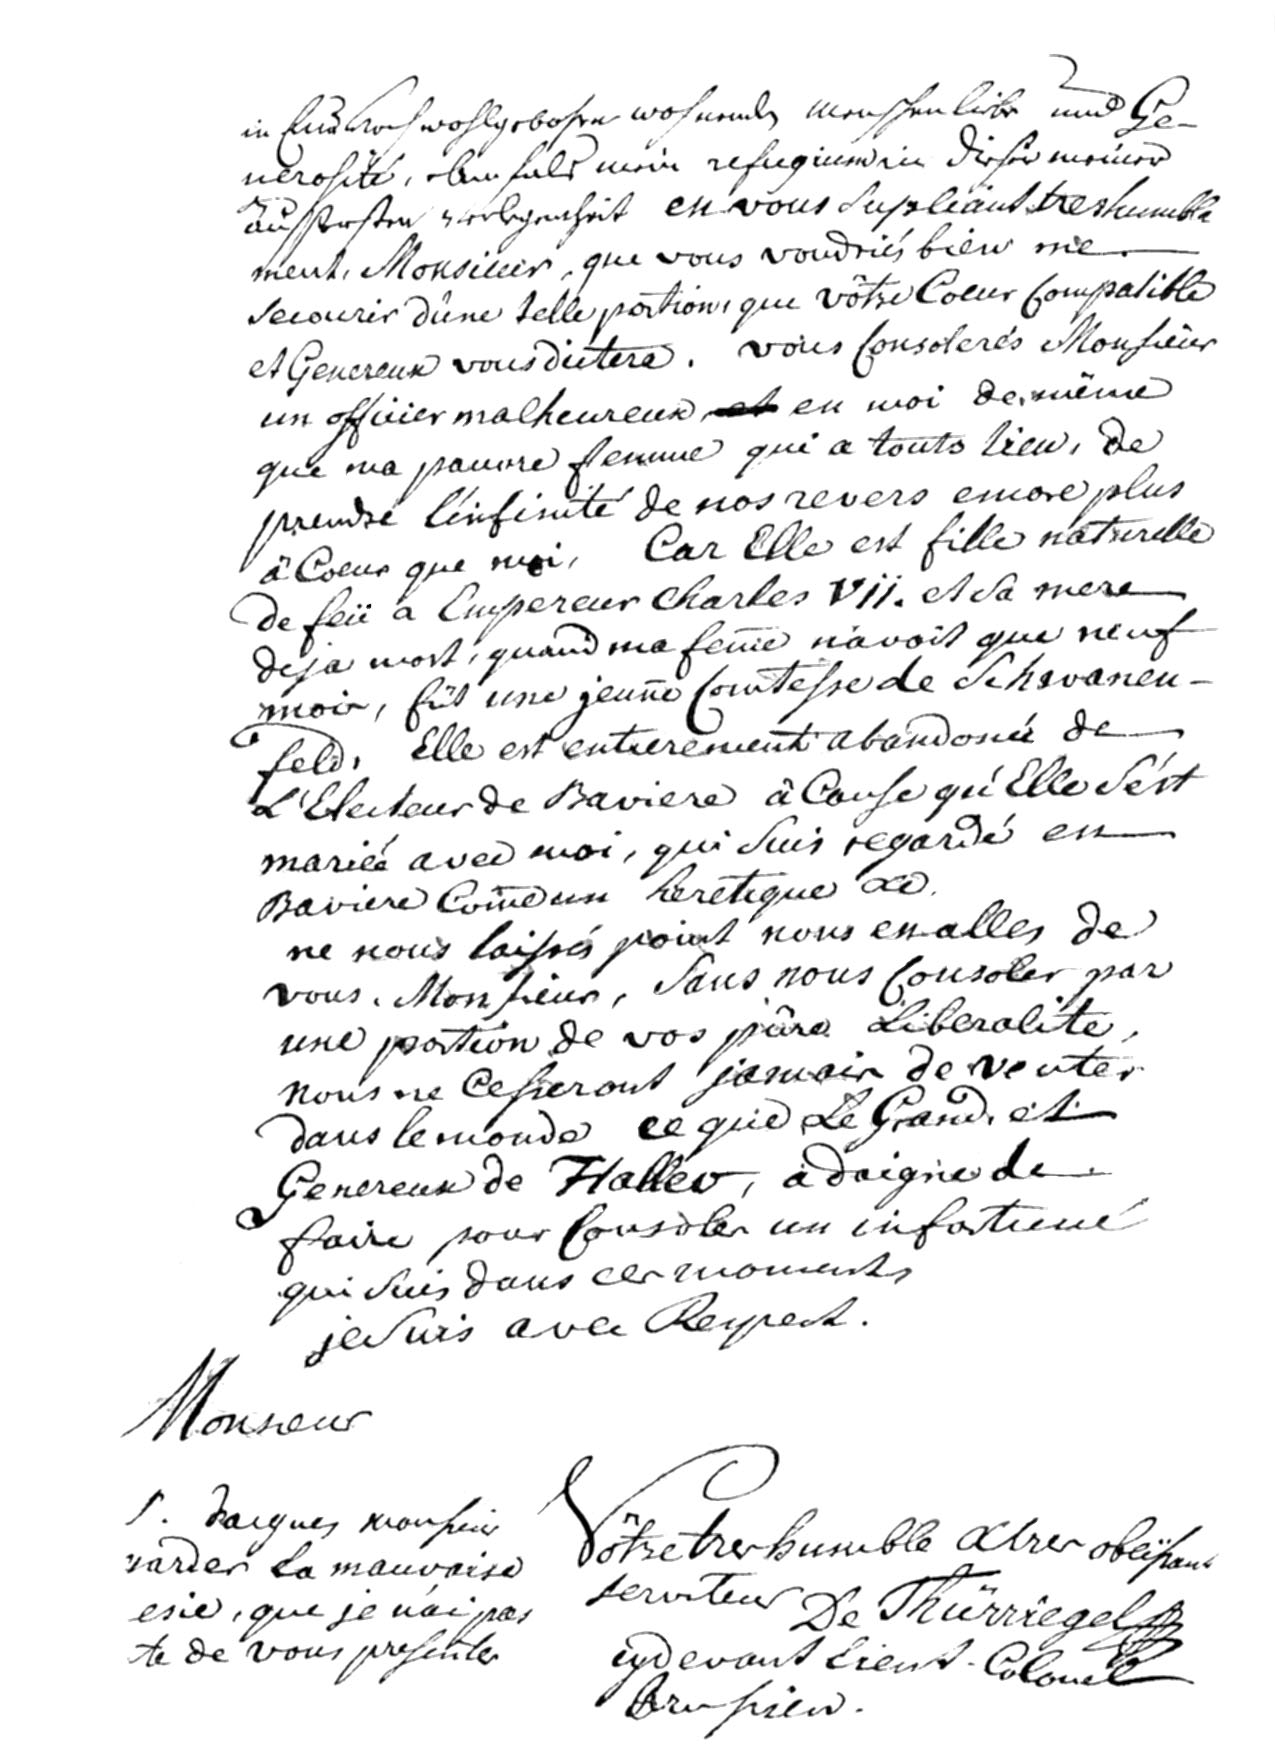 in Euer Hochwohlgebohren wohnende Menschenliebe und Ge-
nerosité, ebenfals mein refugium in dieser meiner
äussersten verlegenheit en vous supliant treshumble
ment, Monsieur, que vous voudriés bien me
secourir d'une telle portion, que vôtre Coeur Compatible
et Genereux vous dictera. vous Consolerés Monsieur
un officier malheureux en moi de même
que ma pauvre femme qui a touts lieu, de
prendre l'infinité de nos revers encore plus
â Coeur que moi, Car Elle est fille naturelle
de feü a Empereur Charles VII. et sa mere
deja mort, quand ma fem̄e n'avoit que neuf
mois, fût une jeun̄e Comtesse de Schwaneu-
feld, Elle est entierement abandoneé de
L'Electeur de Baviere â Cause qu'Elle s'est
marieé avec moi, qui suis regardé en
Baviere Com̄e un heretique &c.
ne nous laissés point nous en aller de
vous, Monsieur, sans nous Consoler par
une portion de vos pure Liberalite,
nous ne Cesseront jamais de venter
dans le monde ce que Le Grand, et
Genereux de Haller, a daigne de
faire pour Consoler un infortuné
qui suis dans ces moments
je suis avec Respect.
Monsieur
Vôtre tres humble & tres obeïssant
serviteur De Thürriegel
cydevant Lieut. Colonel
Prussien.
daignes monsieur
la mauvaise
que je n'ai pas
te de vous presenter